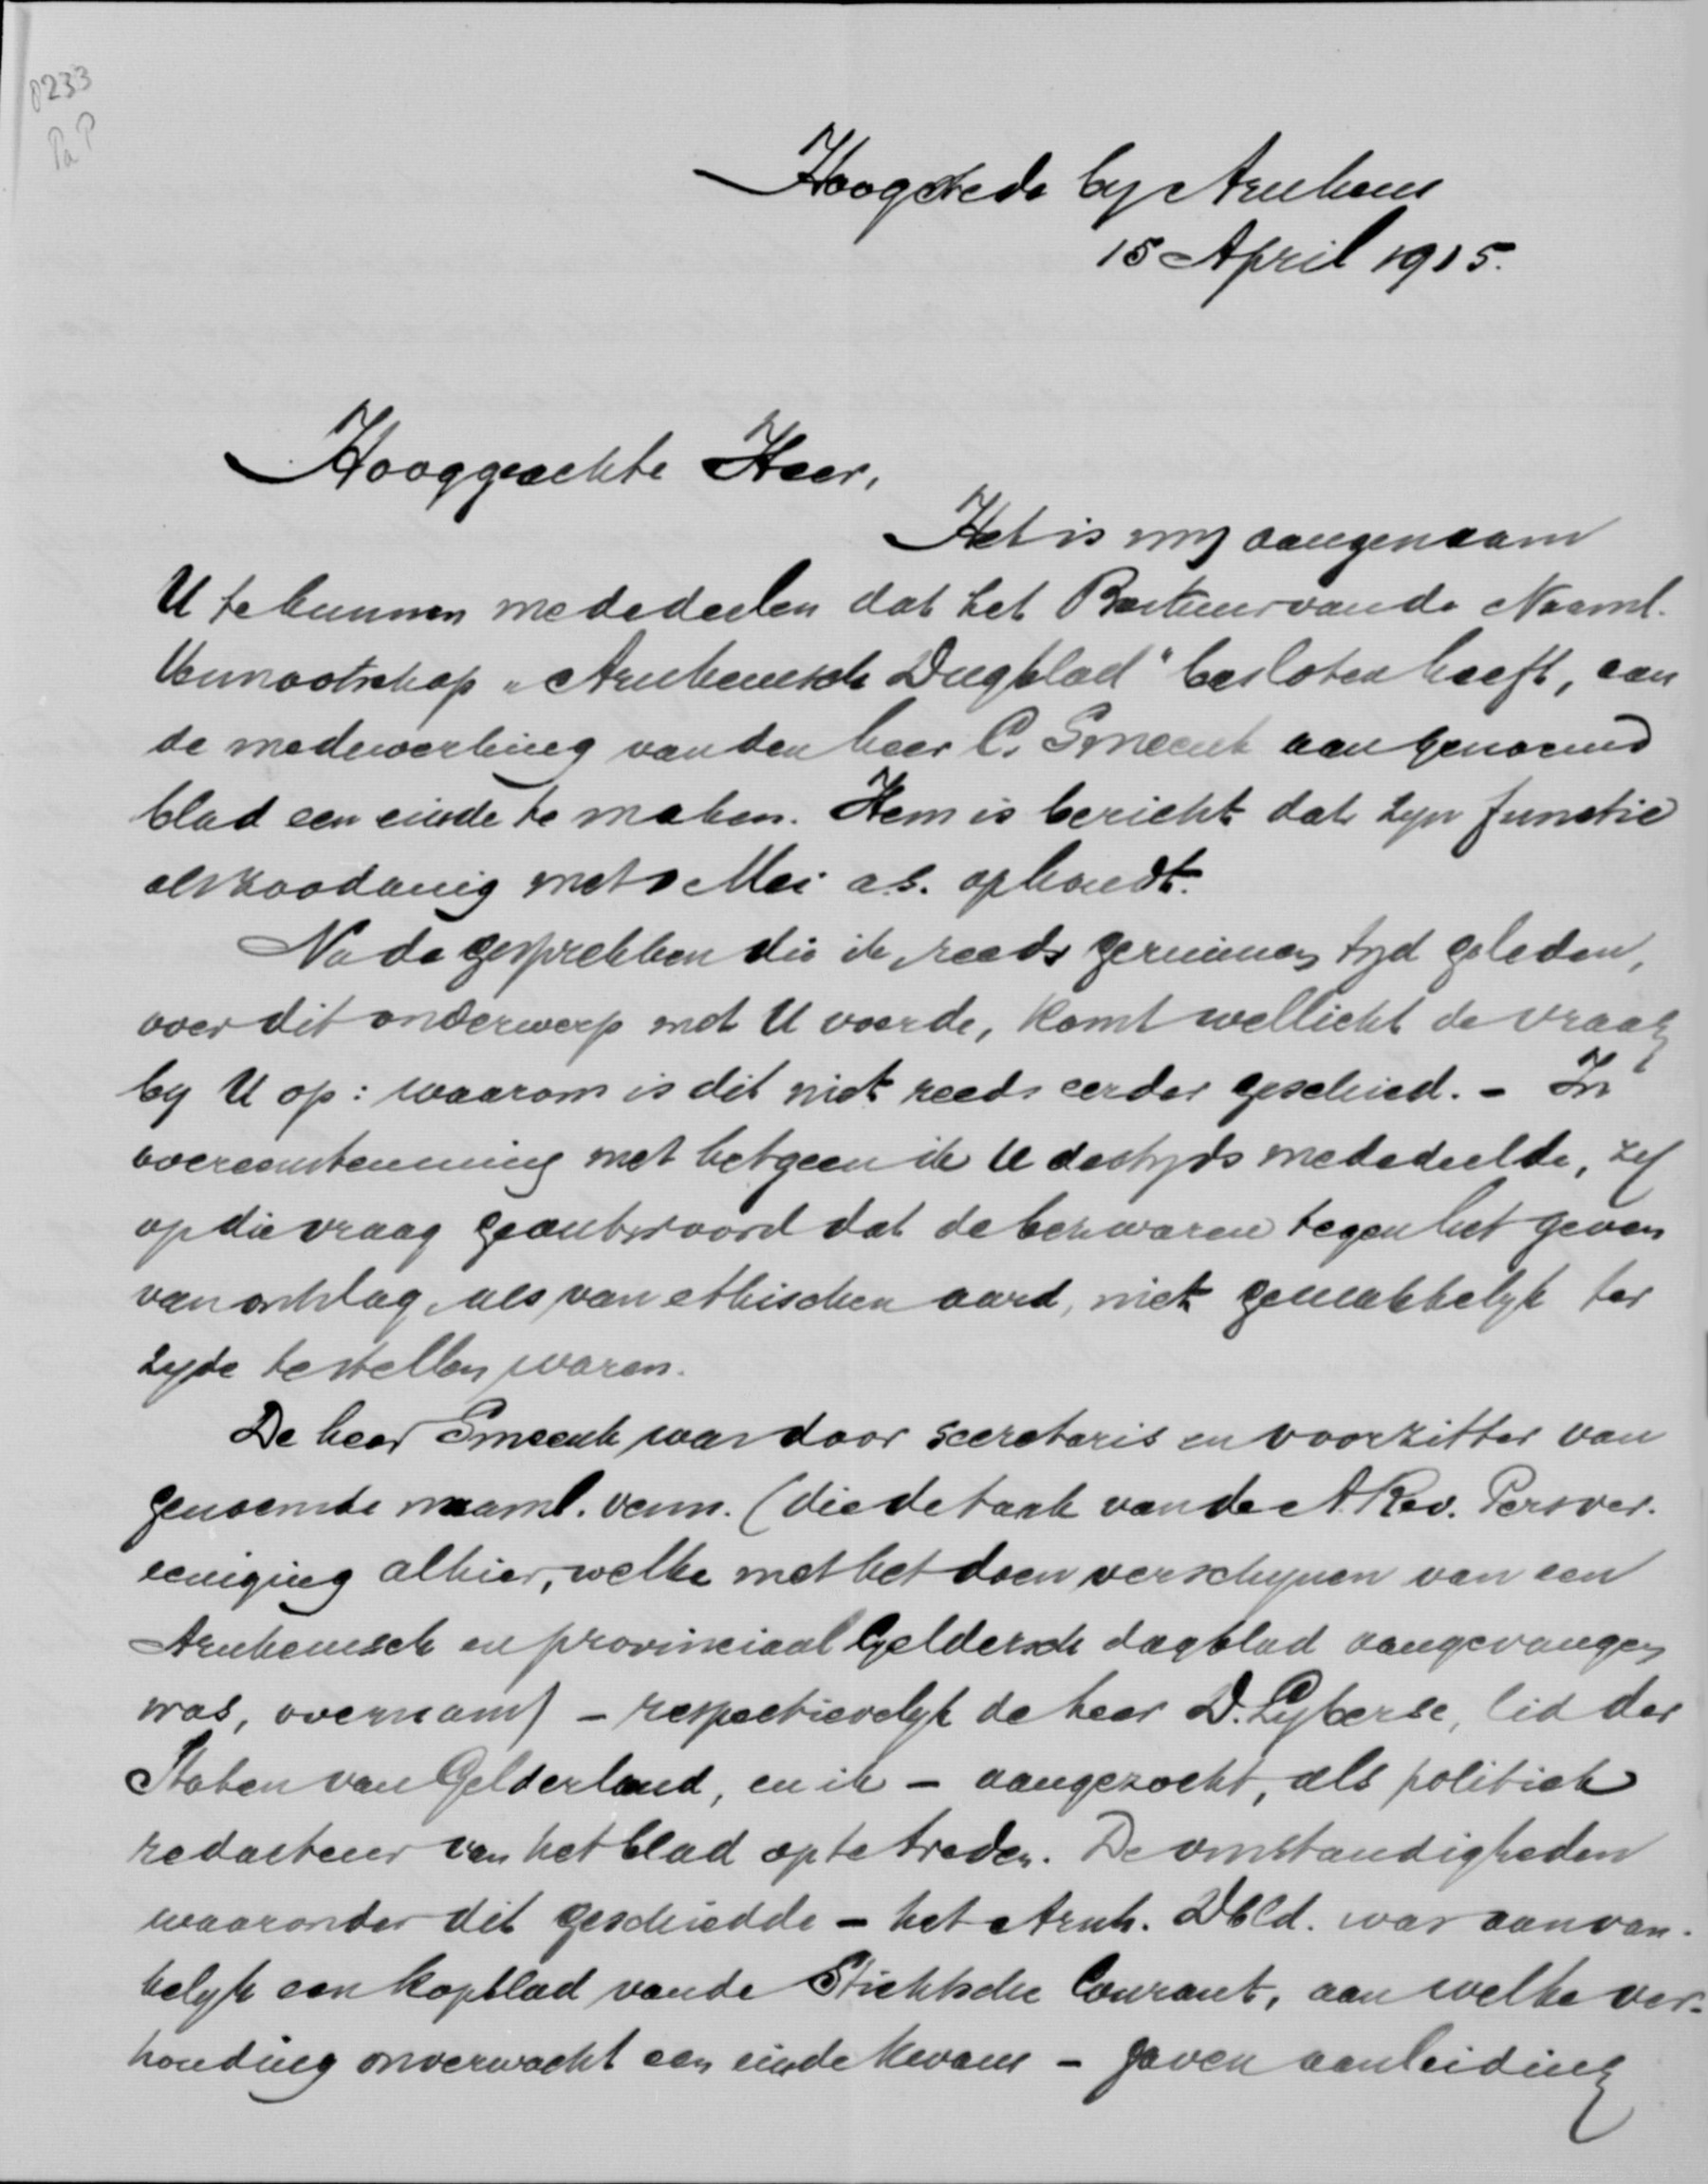 0233
PaP
Hoogstede by Arnhem
15 April 1915.
Hooggeachte Heer,
Het is my aangenaam
U te kunnen mededeelen dat het Bestuur van de Naaml.
Vennootschap „Arnhemsch Dagblad" besloten heeft, aan
de medewerking van den heer C. Smeenk aan genoemd
blad een einde te maken. Hem is bericht dat zyn functie
als zoodanig met 1 Mei a.s. ophoudt.
Na de gesprekken die ik, reeds geruimen tyd geleden,
over dit onderwerp met U voerde, komt wellicht de vraag
by U op: waarom is dit niet reeds eerder geschied. – In
overeenstemming met hetgeen ik U destyds mededeelde, zy
op die vraag geantwoord dat de bezwaren tegen het geven
van ontslag, als van ethischen aard, niet gemakkelyk ter
zyde te stellen waren.
De heer Smeenk was door secretaris en voorzitter van
genoemde naaml. venn. (die de taak van de A. Rev. Persver-
eeniging alhier, welke met het doen verschynen van een
Arnhemsch en provinciaal Geldersch dagblad aangevangen
was, overnam) – respectievelyk de heer D. Lyberse, lid der
Staten van Gelderland, en ik – aangezocht, als politiek
redacteur van het blad op te treden. De omstandigheden
waaronder dit geschiedde – het Arnh. Dbld. was aanvan-
kelyk een kopblad van de Stichtsche Courant, aan welke ver-
houding onverwacht een einde kwam – gaven aanleiding